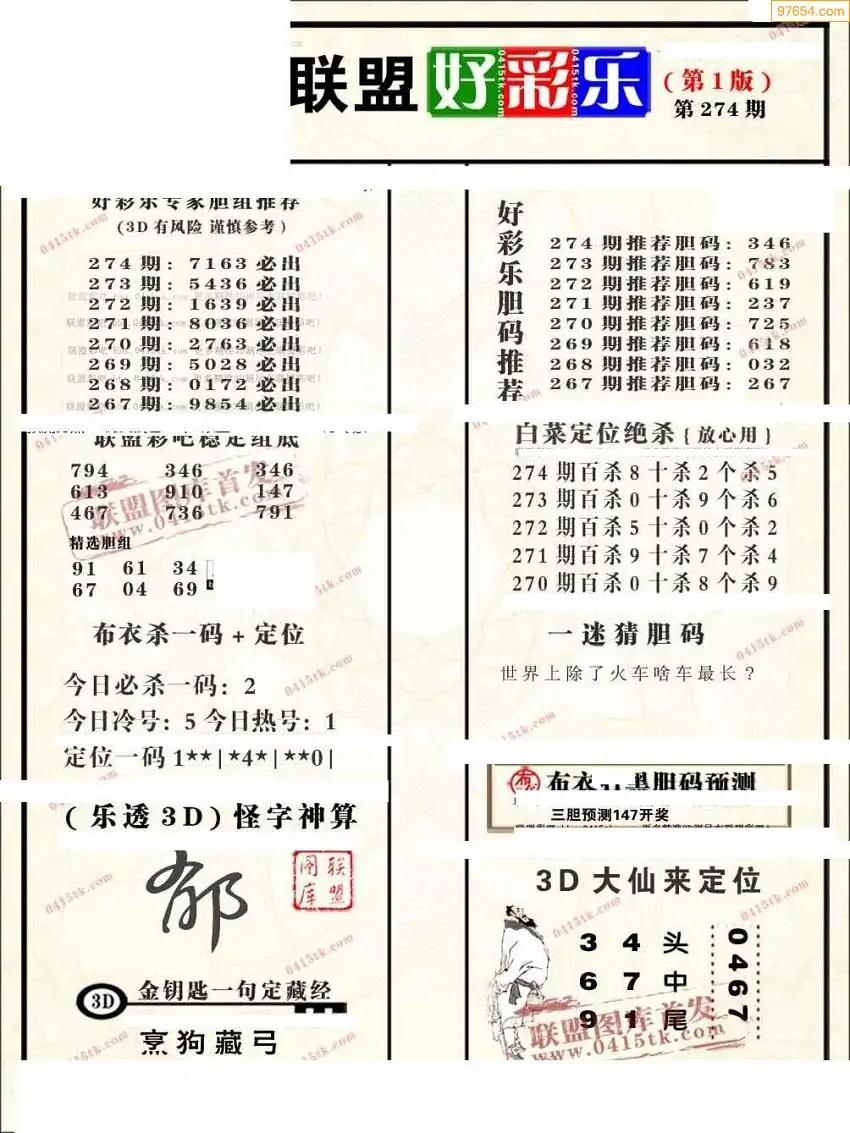 97654.com
联盟好彩乐
(第1版)
第274期
好彩乐专家胆组推荐
(3D有风险 谨慎参考)
274期: 7163必出
273期: 5436必出
272期: 1639必出
271期: 8036必出
270期: 2763必出
269期: 5028必出
268期: 0172必出
267期: 9854必出
好彩乐胆码推荐
274期推荐胆码: 346
273期推荐胆码: 783
272期推荐胆码: 619
271期推荐胆码: 237
270期推荐胆码: 725
269期推荐胆码: 618
268期推荐胆码: 032
267期推荐胆码: 267
联盟彩吧稳定组底
794 346 346
613 910 147
467 736 791
精选胆组
91 61 34
67 04 69
白菜定位绝杀{放心用}
274期百杀8十杀2个杀5
273期百杀0十杀9个杀6
272期百杀5十杀0个杀2
271期百杀9十杀7个杀4
270期百杀0十杀8个杀9
布衣杀一码+定位
今日必杀一码: 2
今日冷号: 5 今日热号: 1
定位一码1**|*4*|**0|
一迷猜胆码
世界上除了火车啥车最长?
布衣
胆码预测
三胆预测147开奖
(乐透3D)怪字神算
郁
联盟图库
3D
金钥匙一句定藏经
烹狗藏弓
3D大仙来定位
3 4 头
6 7 中
9 1 尾
0467
联盟图库首发
www.0415tk.com
联盟图库首发
www.0415tk.com
0415tk.com